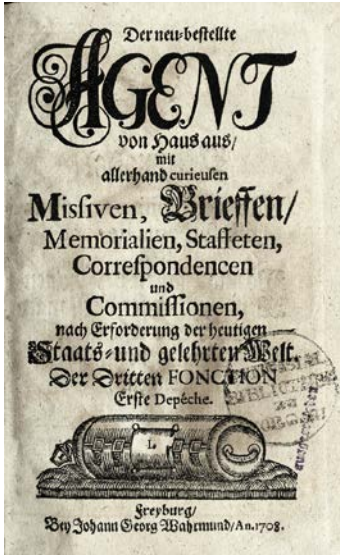 Der neu-bestellte
AGENT
von Haus aus/
mit
allerhand curieusen
Missiven, Brieffen/
Memorialien, Staffeten,
Correspondencen
und
Commissionen,
nach Erforderung der heutigen
Staats- und gelehrten Welt.
Der Dritten FONCTION
Erste Depêche.
L
Freyburg/
Bey Johann Georg Wahrmund/An.1708.